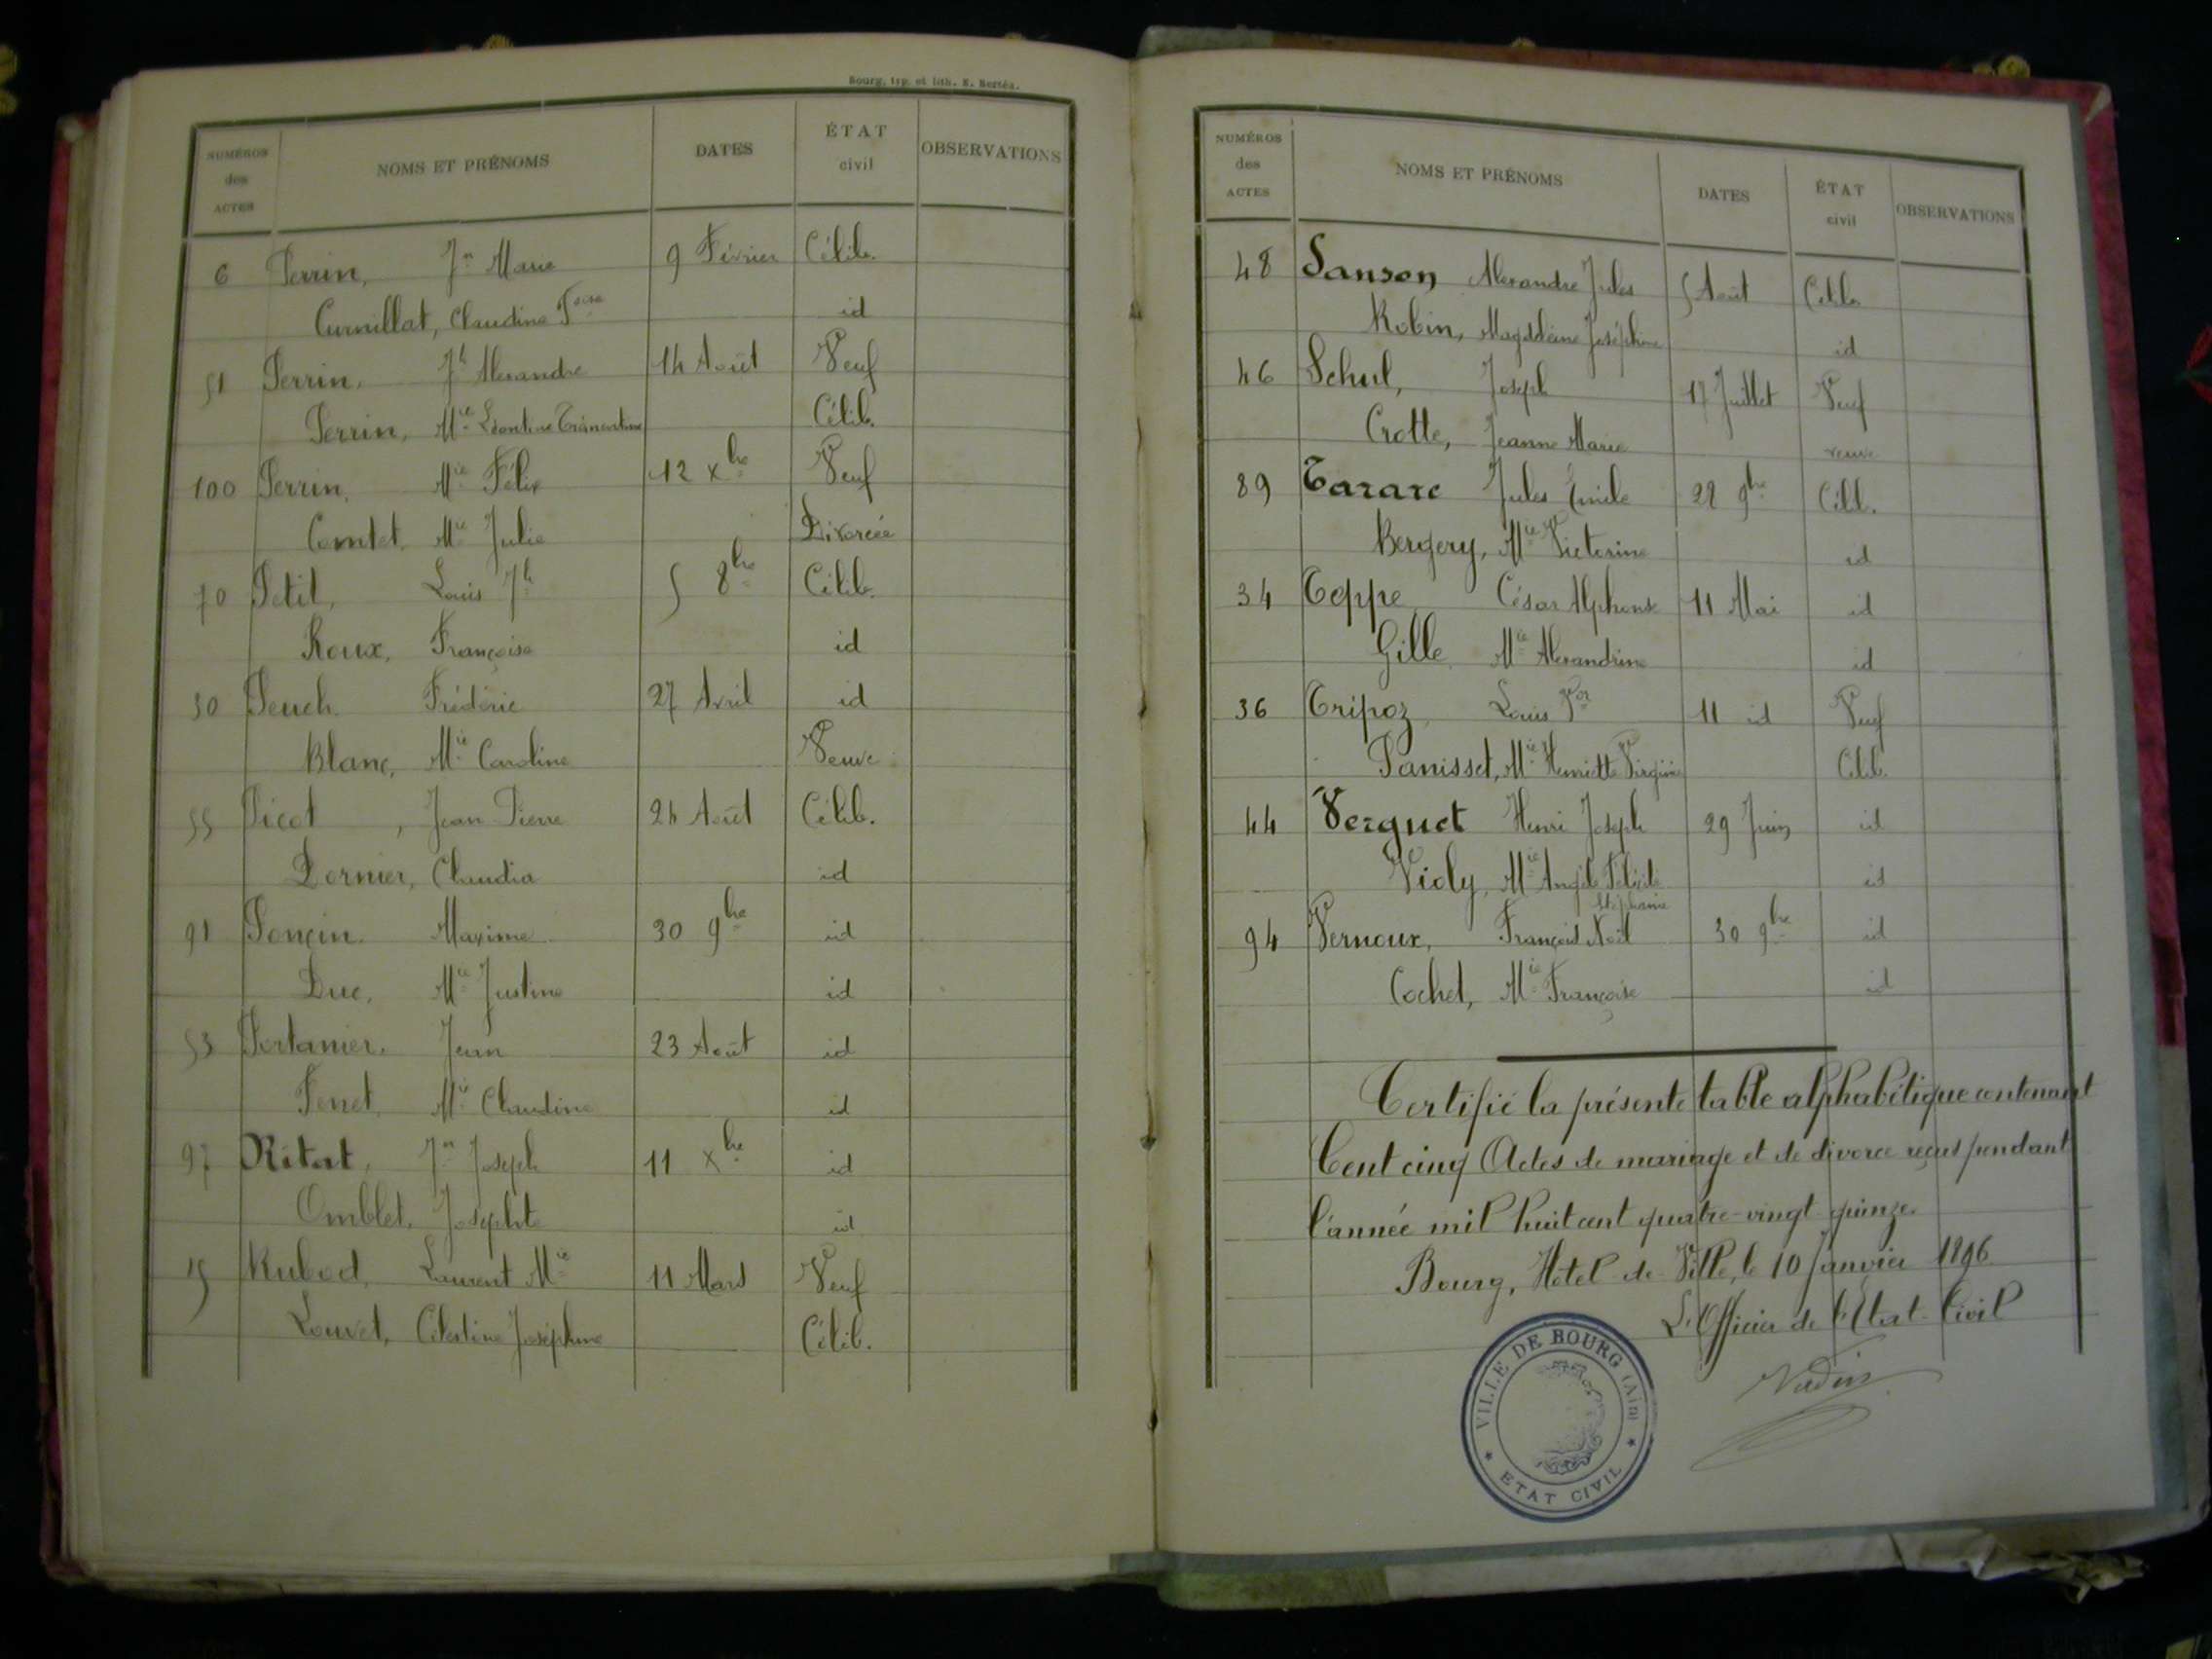 Bourg, typ. et lith. E. Bertéa.
NUMÉROS des ACTES NOMS ET PRÉNOMS DATES ÉTAT civil OBSERVATIONS
6 Perrin, Jn Marie 9 Février Célib.
Curnillat, Claudine Fçoise id
51 Perrin, Jh Alexandre 14 Août Veuf
Perrin, Mie Léontine Célib.
100 Perrin, Mie Félix 12 Xbre Veuf
Comtet, Mie Julie Divorcée
70 Petit, Louis Jh 5 8bre Célib.
Roux, Françoise id
30 Peuch Frédéric 27 Avril id
Blanc, Mie Caroline Veuve
55 Picot, Jean Pierre 24 Août Célib.
Dornier, Claudia id
91 Ponçin Maxime 30 9bre id
Duc, Mie Justine id
53 Portanier, Jean 23 Août id
Fenet, Mie Claudine id
97 Ritat, Jn Joseph 11 Xbre id
Omblet, Josephte id
15 Rubod, Laurent Mie 11 Mars Veuf
Louvet, Célestine Joséphine Célib.
NUMÉROS des ACTES NOMS ET PRÉNOMS DATES ÉTAT civil OBSERVATIONS
48 Sanson Alexandre Jules 5 Août Célib.
Robin, Magdeleine Joséphine id
46 Schul, Joseph 17 Juillet Veuf
Crotte, Jeanne Marie veuve
89 Tarare Jules Emile 28 9bre Célib.
Bergery, Mie Victorine id
34 Teppe César Alphonse 11 Mai id
Gille Mie Alexandrine id
36 Tripoz, Louis Vor 11 id Veuf
Panisset, Mie Henriette Virginie Célib.
44 Verguet Henri Joseph 29 Juin id
Violy, Mie Angèle Félicité Stéphanie id
94 Vernoux, François Noël 30 9bre id
Cochet, Mie Françoise id
Certifié la présente table alphabétique contenant
Cent cinq Actes de mariage et de divorce reçus pendant
l'année mil huit cent quatre-vingt quinze.
Bourg, Hôtel de Ville, le 10 Janvier 1896
L'Officier de l'État-Civil
VILLE DE BOURG (Ain)
ETAT CIVIL